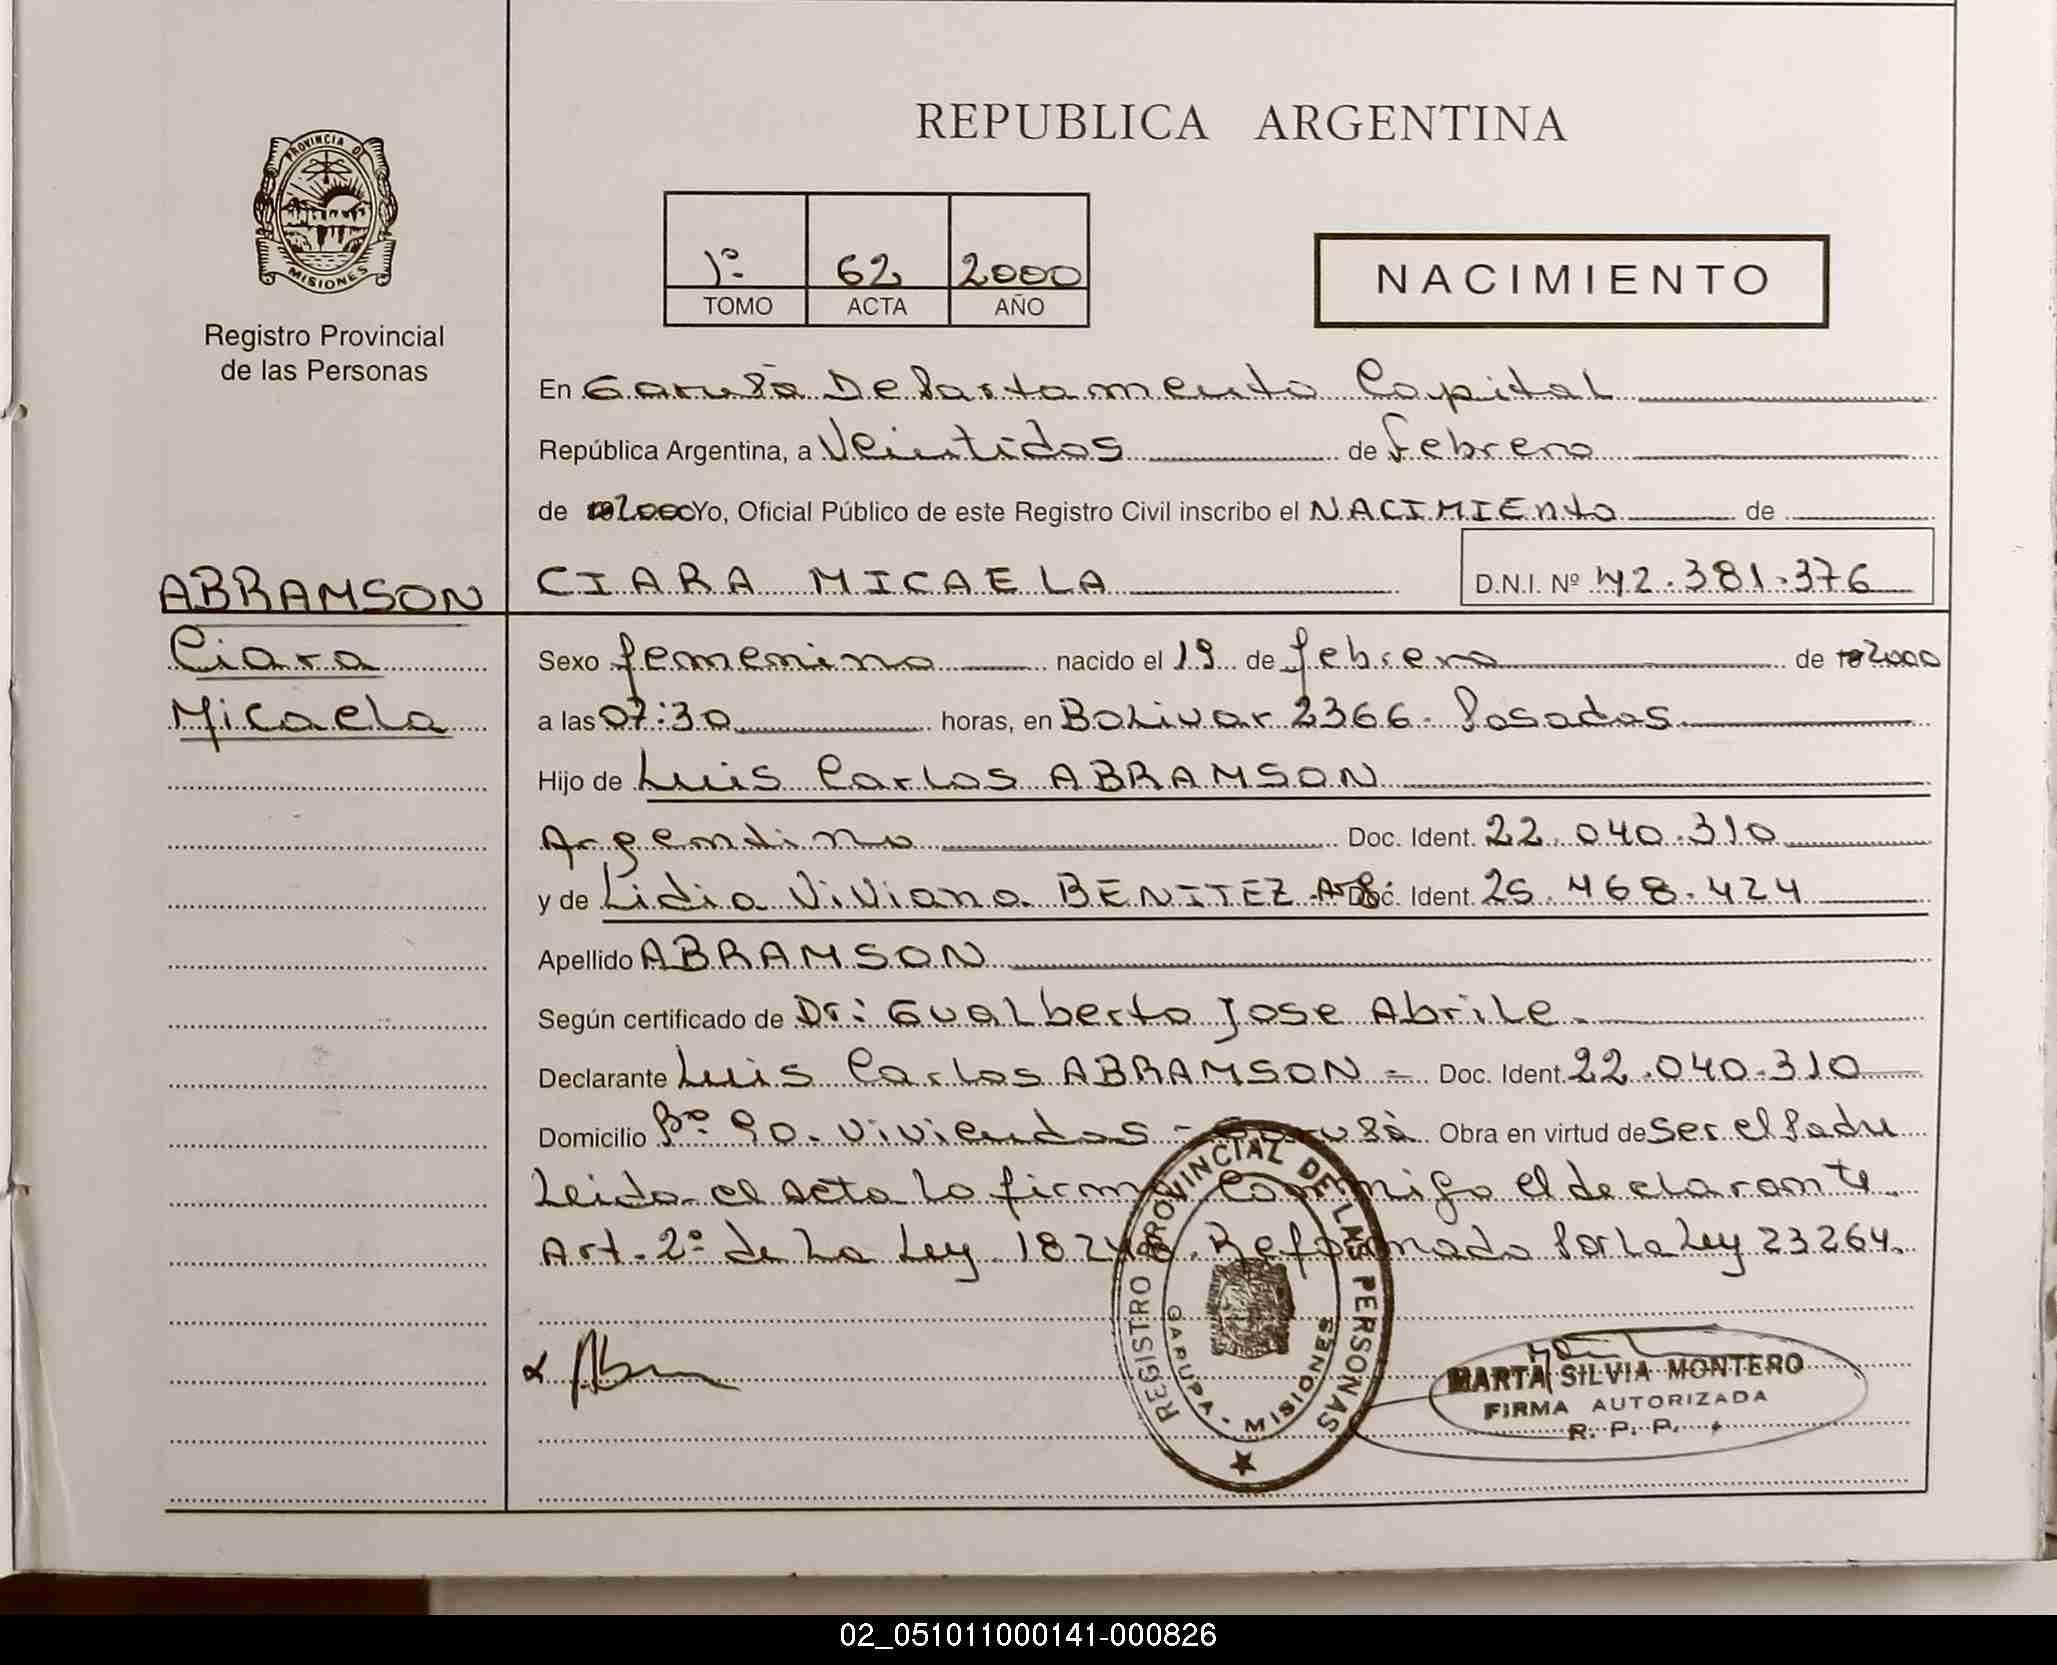 REPUBLICA ARGENTINA
PROVINCIA DE
MISIONES
Registro Provincial
de las Personas
1º 62 2000
TOMO ACTA AÑO
NACIMIENTO
En Garupá Departamento Capital
República Argentina, a Veintidos de Febrero
de 2000 Yo, Oficial Público de este Registro Civil inscribo el NACIMIENto de
ABRAMSON
Ciara
Micaela
CIARA MICAELA D.N.I. Nº 42.381.376
Sexo femenino nacido el 19 de febrero de 2000
a las 07:30 horas, en Bolivar 2366 - Posadas
Hijo de Luis Carlos ABRAMSON
Argentino Doc. Ident. 22.040.310
y de Lidia Viviana BENITEZ Arg. Doc. Ident. 25.468.424
Apellido ABRAMSON
Según certificado de Dr: Gualberto Jose Abrile.
Declarante Luis Carlos ABRAMSON = Doc. Ident. 22.040.310
Domicilio Bº 90. Viviendas - Garupá Obra en virtud de Ser el Padre
Leida el acta la firma Conmigo el declarante.
Art. 2º de La Ley 18248. Reformado Por La Ley 23264.
REGISTRO PROVINCIAL DE LAS PERSONAS
GARUPA - MISIONES
MARTA SILVIA MONTERO
FIRMA AUTORIZADA
R. P. P.
02_051011000141-000826